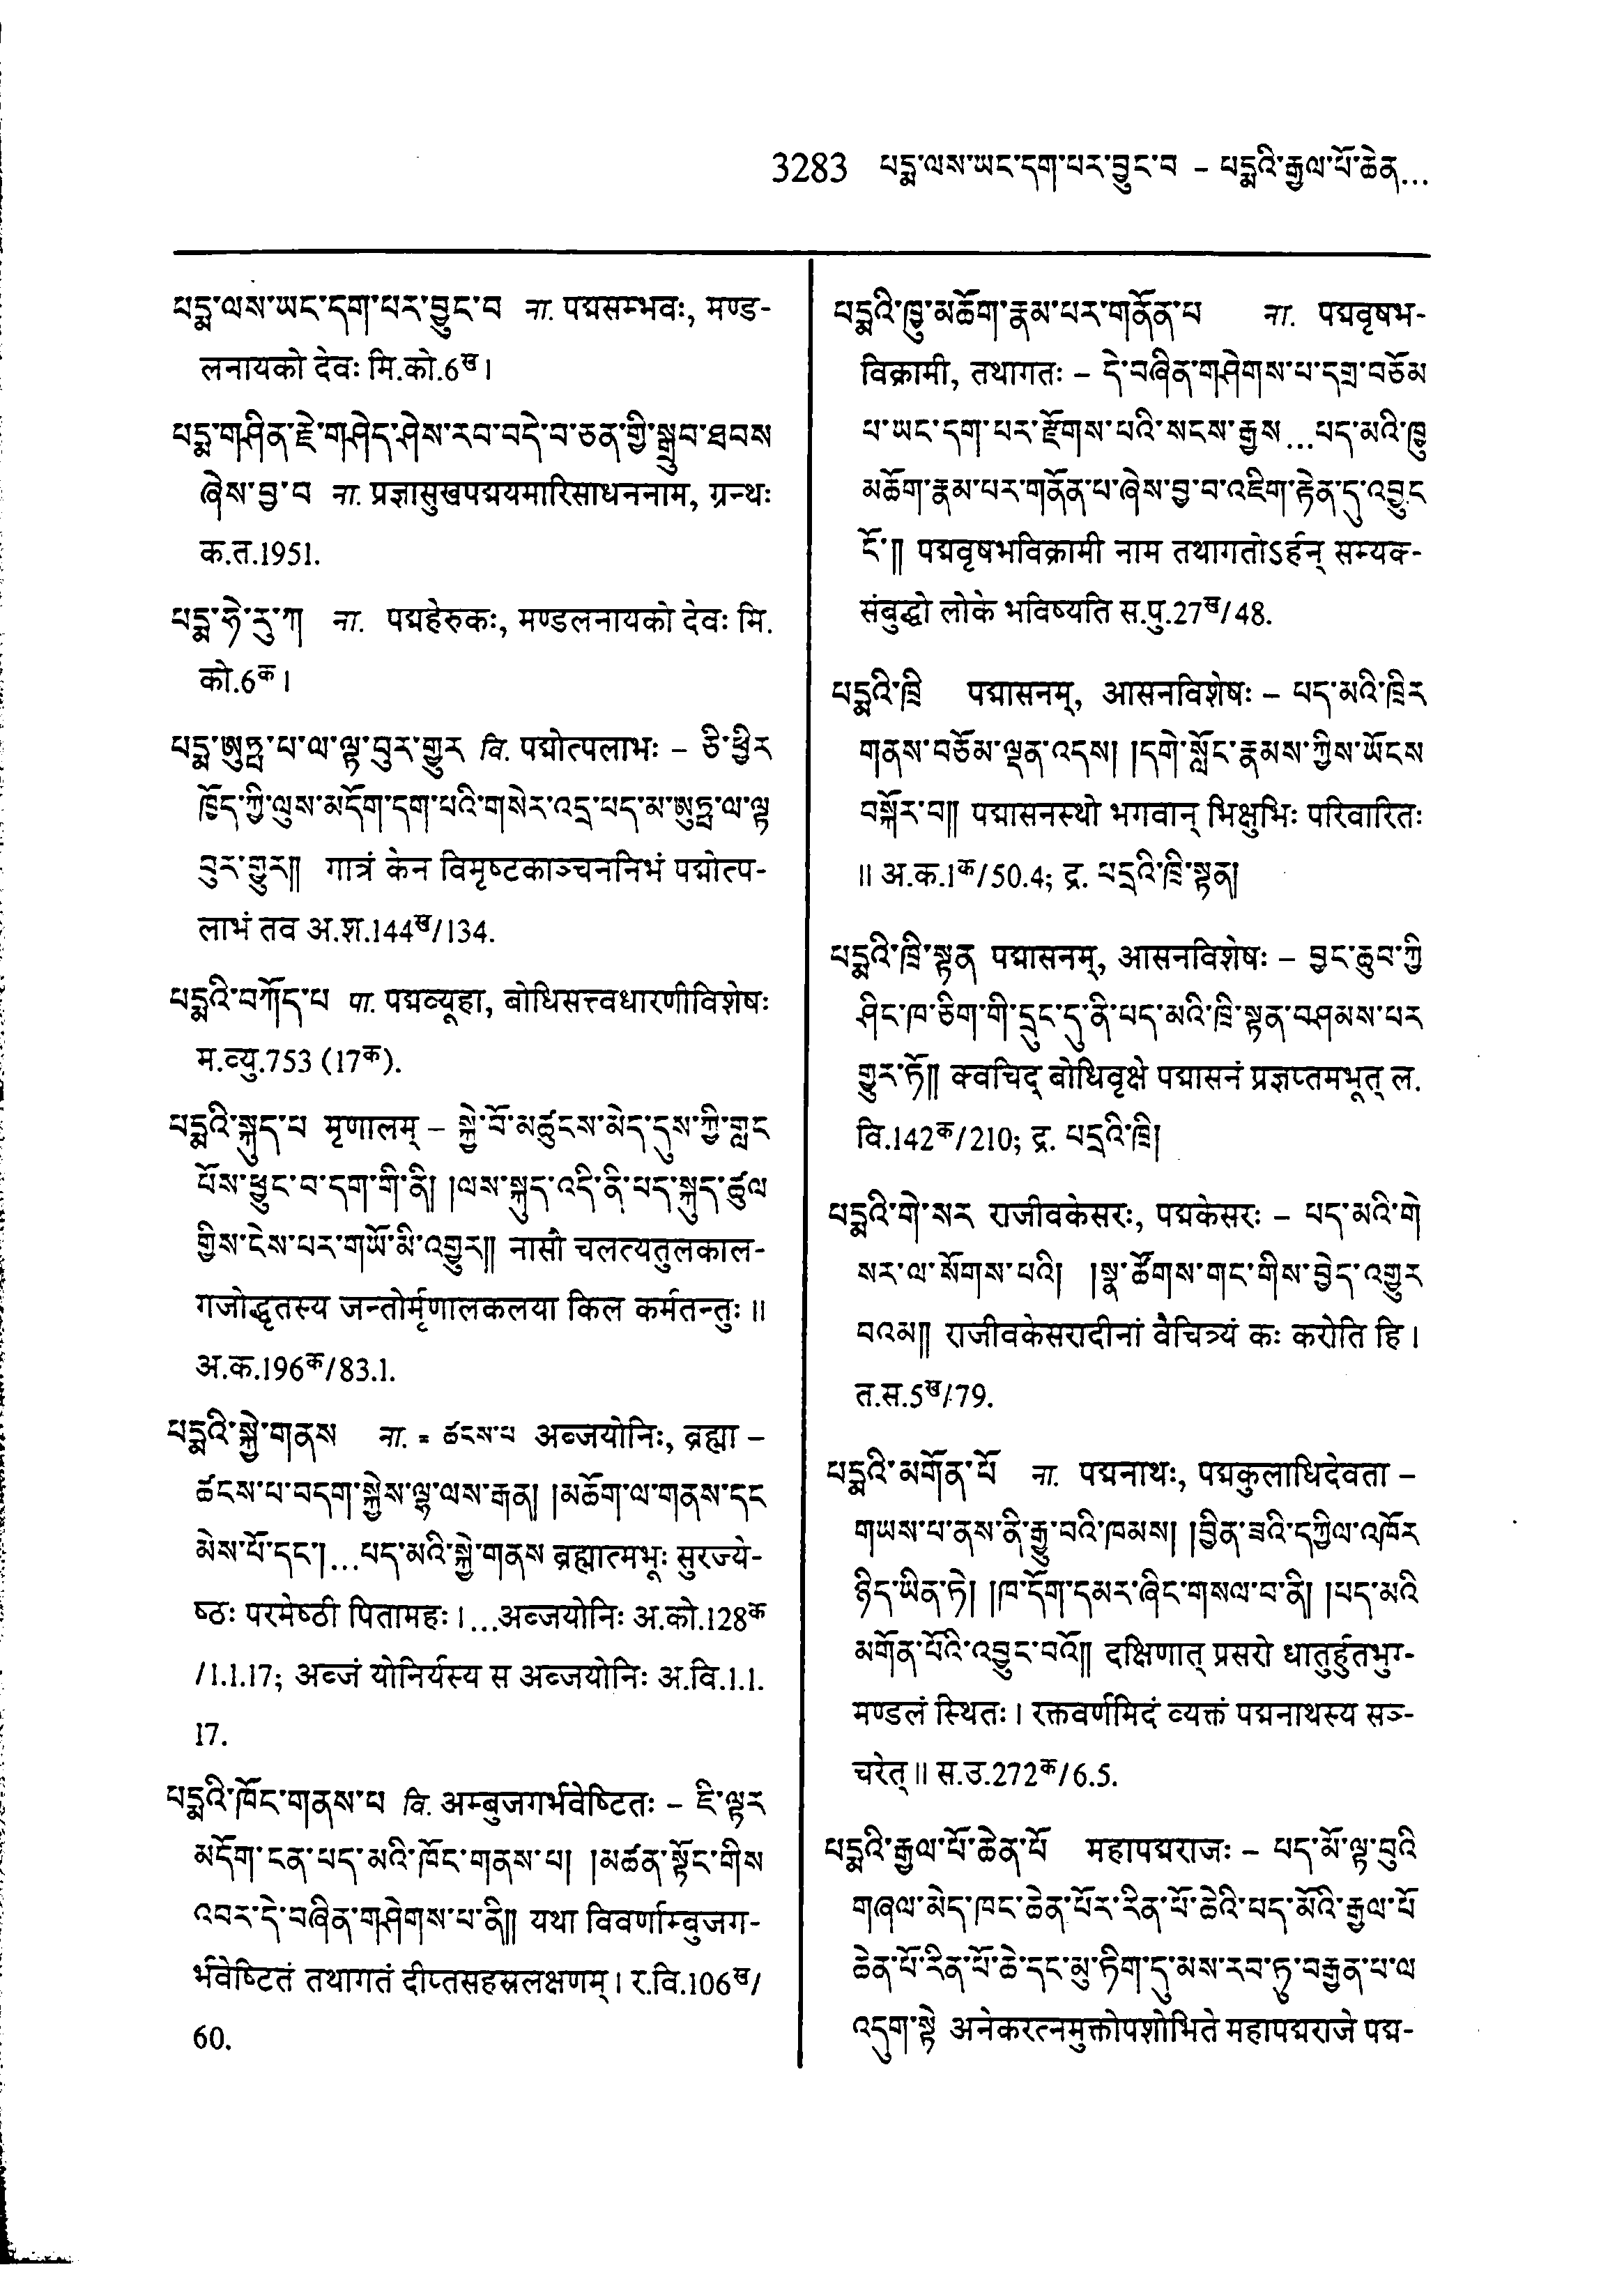 3283 པདྨ་ལས་ཡང་དག་པར་བྱུང་བ – པདྨའི་རྒྱལ་པོ་ཆེན...
པདྨ་ལས་ཡང་དག་པར་བྱུང་བ ना. पद्मसम्भवः, मण्ड-
लनायको देवः मि.को.6ख।
པདྨ་གཤིན་རྗེ་གཤེད་ཤེས་རབ་བདེ་བ་ཅན་གྱི་སྒྲུབ་ཐབས
ཞེས་བྱ་བ ना. प्रज्ञासुखपद्मयमारिसाधननाम, ग्रन्थः
क.त.1951.
པདྨ་ཧེ་རུ་ཀ ना. पद्महेरुकः, मण्डलनायको देवः मि.
को.6क।
པདྨ་ཨུཏྤ་པ་ལ་ལྟ་བུར་གྱུར वि. पद्मोत्पलाभः – ཅི་ཕྱིར
ཁྱོད་ཀྱི་ལུས་མདོག་དག་པའི་གསེར་འདྲ་པད་མ་ཨུཏྤ་ལ་ལྟ
བུར་གྱུར༎ गात्रं केन विमृष्टकाञ्चननिभं पद्मोत्प-
लाभं तव अ.श.144ख/134.
པདྨའི་བཀོད་པ पा. पद्मव्यूहा, बोधिसत्त्वधारणीविशेषः
म.व्यु.753 (17क).
པདྨའི་སྐུད་པ मृणालम् – སྐྱེ་བོ་མཚུངས་མེད་དུས་ཀྱི་གླང
པོས་ཕྱུང་བ་དག་གི་ནི། །ལས་སྐུད་འདི་ནི་པད་སྐུད་ཚུལ
གྱིས་ངེས་པར་གཡོ་མི་འགྱུར༎ नासौ चलत्यतुलकाल-
गजोद्धृतस्य जन्तोर्मृणालकलया किल कर्मतन्तुः॥
अ.क.196क/83.1.
པདྨའི་སྐྱེ་གནས ना. = ཚངས་པ अब्जयोनिः, ब्रह्मा –
ཚངས་པ་བདག་སྐྱེས་ལྷ་ལས་རྒན། །མཆོག་ལ་གནས་དང
མེས་པོ་དང་།...པད་མའི་སྐྱེ་གནས ब्रह्मात्मभूः सुरज्ये-
ष्ठः परमेष्ठी पितामहः।...अब्जयोनिः अ.को.128क
/1.1.17; अब्जं योनिर्यस्य स अब्जयोनिः अ.वि.1.1.
17.
པདྨའི་ཁོང་གནས་པ वि. अम्बुजगर्भवेष्टितः – ཇི་ལྟར
མདོག་ངན་པད་མའི་ཁོང་གནས་པ། །མཚན་སྟོང་གིས
འབར་དེ་བཞིན་གཤེགས་པ་ནི༎ यथा विवर्णाम्बुजग-
र्भवेष्टितं तथागतं दीप्तसहस्रलक्षणम्। र.वि.106ख/
60.
པདྨའི་ཁྱུ་མཆོག་རྣམ་པར་གནོན་པ ना. पद्मवृषभ-
विक्रामी, तथागतः – དེ་བཞིན་གཤེགས་པ་དགྲ་བཅོམ
པ་ཡང་དག་པར་རྫོགས་པའི་སངས་རྒྱས...པད་མའི་ཁྱུ
མཆོག་རྣམ་པར་གནོན་པ་ཞེས་བྱ་བ་འཇིག་རྟེན་དུ་འབྱུང
ངོ་༎ पद्मवृषभविक्रामी नाम तथागतोऽर्हन् सम्यक्-
संबुद्धो लोके भविष्यति स.पु.27ख/48.
པདྨའི་ཁྲི पद्मासनम्, आसनविशेषः – པད་མའི་ཁྲིར
གནས་བཅོམ་ལྡན་འདས། །དགེ་སློང་རྣམས་ཀྱིས་ཡོངས
བསྐོར་བ༎ पद्मासनस्थो भगवान् भिक्षुभिः परिवारितः
॥ अ.क.1क/50.4; द्र. པདྨའི་ཁྲི་སྟན།
པདྨའི་ཁྲི་སྟན पद्मासनम्, आसनविशेषः – བྱང་ཆུབ་ཀྱི
ཤིང་ཁ་ཅིག་གི་དྲུང་དུ་ནི་པད་མའི་ཁྲི་སྟན་བཤམས་པར
གྱུར་ཏོ༎ क्वचिद् बोधिवृक्षे पद्मासनं प्रज्ञप्तमभूत् ल.
वि.142क/210; द्र. པདྨའི་ཁྲི།
པདྨའི་གེ་སར राजीवकेसरः, पद्मकेसरः – པད་མའི་གེ
སར་ལ་སོགས་པའི། །སྣ་ཚོགས་གང་གིས་བྱེད་འགྱུར
བའམ༎ राजीवकेसरादीनां वैचित्र्यं कः करोति हि।
त.स.5ख/79.
པདྨའི་མགོན་པོ ना. पद्मनाथः, पद्मकुलाधिदेवता –
གཡས་པ་ནས་ནི་རྒྱུ་བའི་ཁམས། །བྱིན་ཟའི་དཀྱིལ་འཁོར
ཉིད་ཡིན་ཏེ། །ཁ་དོག་དམར་ཞིང་གསལ་བ་ནི། །པད་མའི
མགོན་པོའི་འབྱུང་བའོ༎ दक्षिणात् प्रसरो धातुर्हुतभुग्-
मण्डलं स्थितः। रक्तवर्णमिदं व्यक्तं पद्मनाथस्य सञ्-
चरेत्॥ स.उ.272क/6.5.
པདྨའི་རྒྱལ་པོ་ཆེན་པོ महापद्मराजः – པད་མོ་ལྟ་བུའི
གཞལ་མེད་ཁང་ཆེན་པོར་རིན་པོ་ཆེའི་པད་མོའི་རྒྱལ་པོ
ཆེན་པོ་རིན་པོ་ཆེ་དང་མུ་ཏིག་དུ་མས་རབ་ཏུ་བརྒྱན་པ་ལ
འདུག་སྟེ अनेकरत्नमुक्तोपशोभिते महापद्मराजे पद्म-